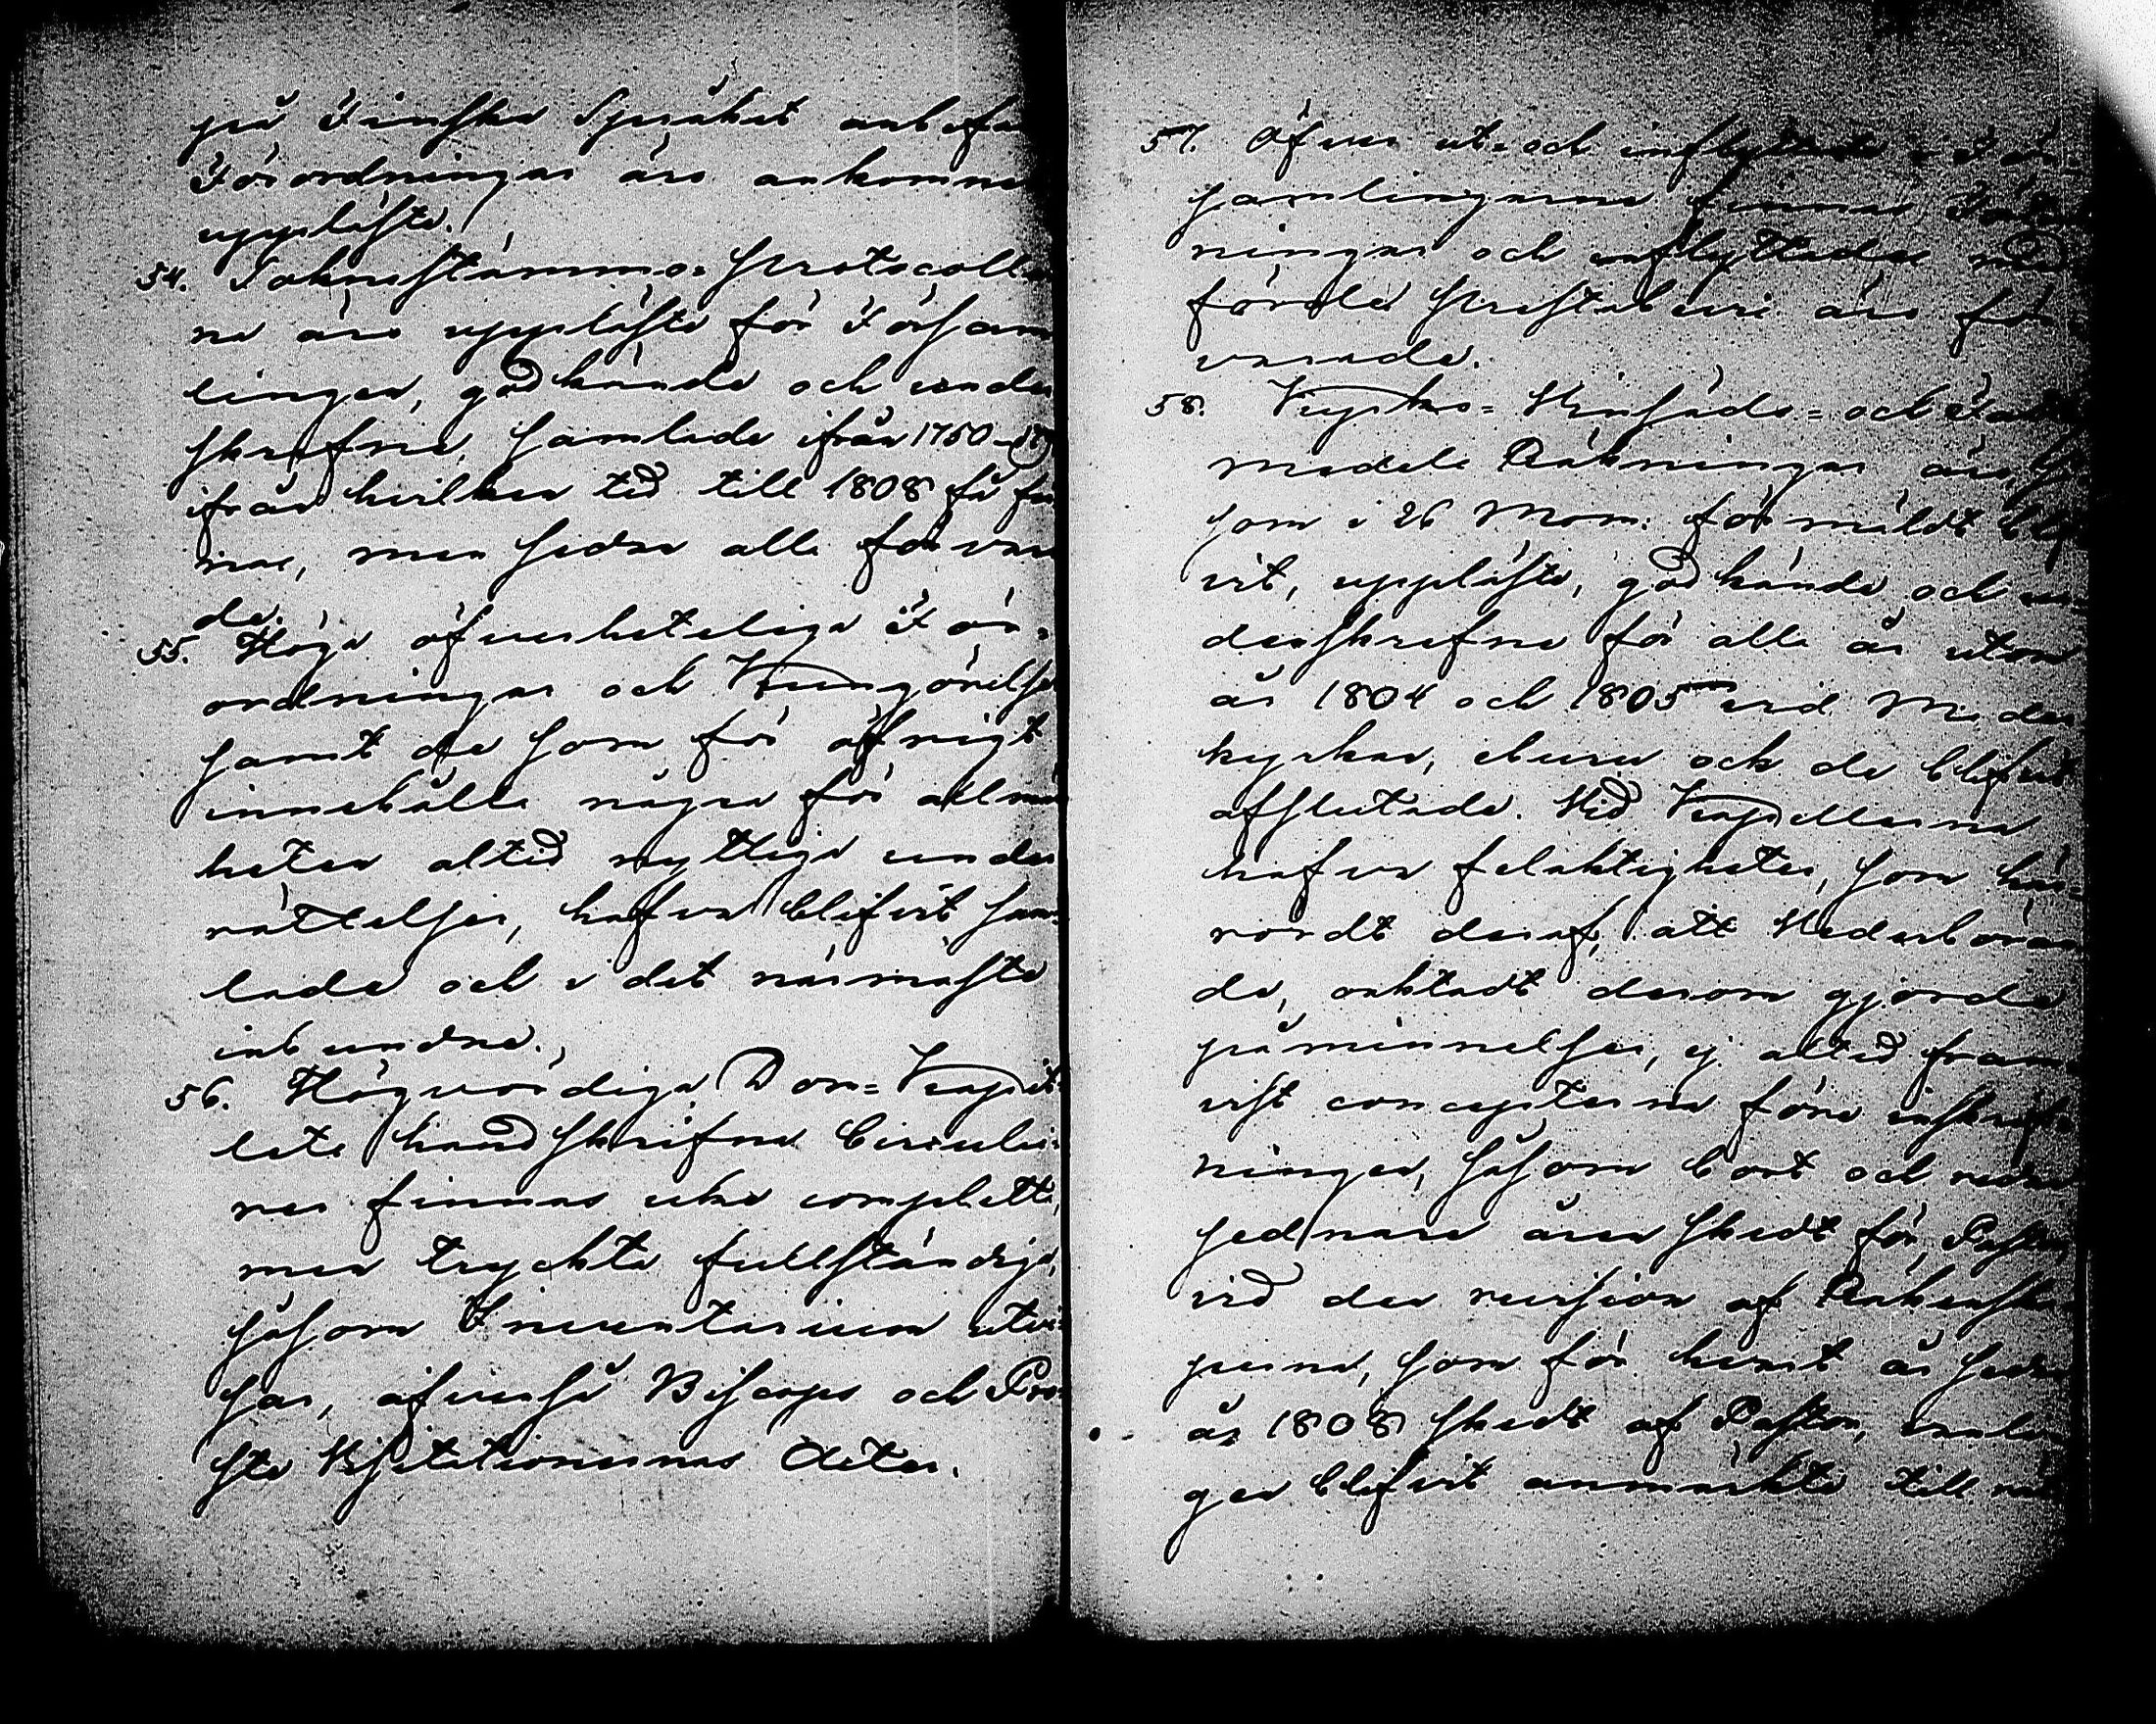 på Finska Språket utkom
Förordningar äro ankomne
uppläste.
54. Sokneståmmo=Protocoller
na äro uppläste för Försam
lingen, godkände och under
skrefne, samlade ifrån 1750
ifrån hvilken tid till 1808 få fin
nas, men sedan alla förvara
de.
55. Höga öfverheteliga För=
ordningar och Kungörelser
samt de som för öfrigt
innehålla några för allmän
heten altid nyttiga under
rättelser, hafva blifvit sam=
lade och i det närmaste
inbundne.
56. Högvördiga Dom=Capit
lets handskrifna Circulai=
rer finnas icke complette,
men tryckta fullständiga,
såsom Inventarium utvi=
sar, äfvenså Biscops och Pro=
sts Visitationernas Acter.
57. Öfver ut= och inflyttade i För
samlingarne finnas Förteck
ningar och inflyttades med
förde Prestabevis äro för
varade.
58. Kyrko= Kinsäds= och Fattig
medels Räkningar äro, så
som i 26 Mom: förmäldt blif
vit, uppläste, godkände och un=
derskrefne för alla år utom
år 1804 och 1805 vid Moder
kyrkan, ehuru ock de blifvit
afslutade. Vid Capellerna
hafva felaktigheter, som här=
rördt deraf, att Vederböran
de, oaktadt derom gjorde
påminnelser, ej altid fram
vist concepterna före inskrif=
ningen, såsom bort och vidare
sednare åren skedt för Pastor
vid den revision af Räkenska
perna, som för hvart år sedan
år 1808 skedt af Pastor,
gen blifvit anmärkte till